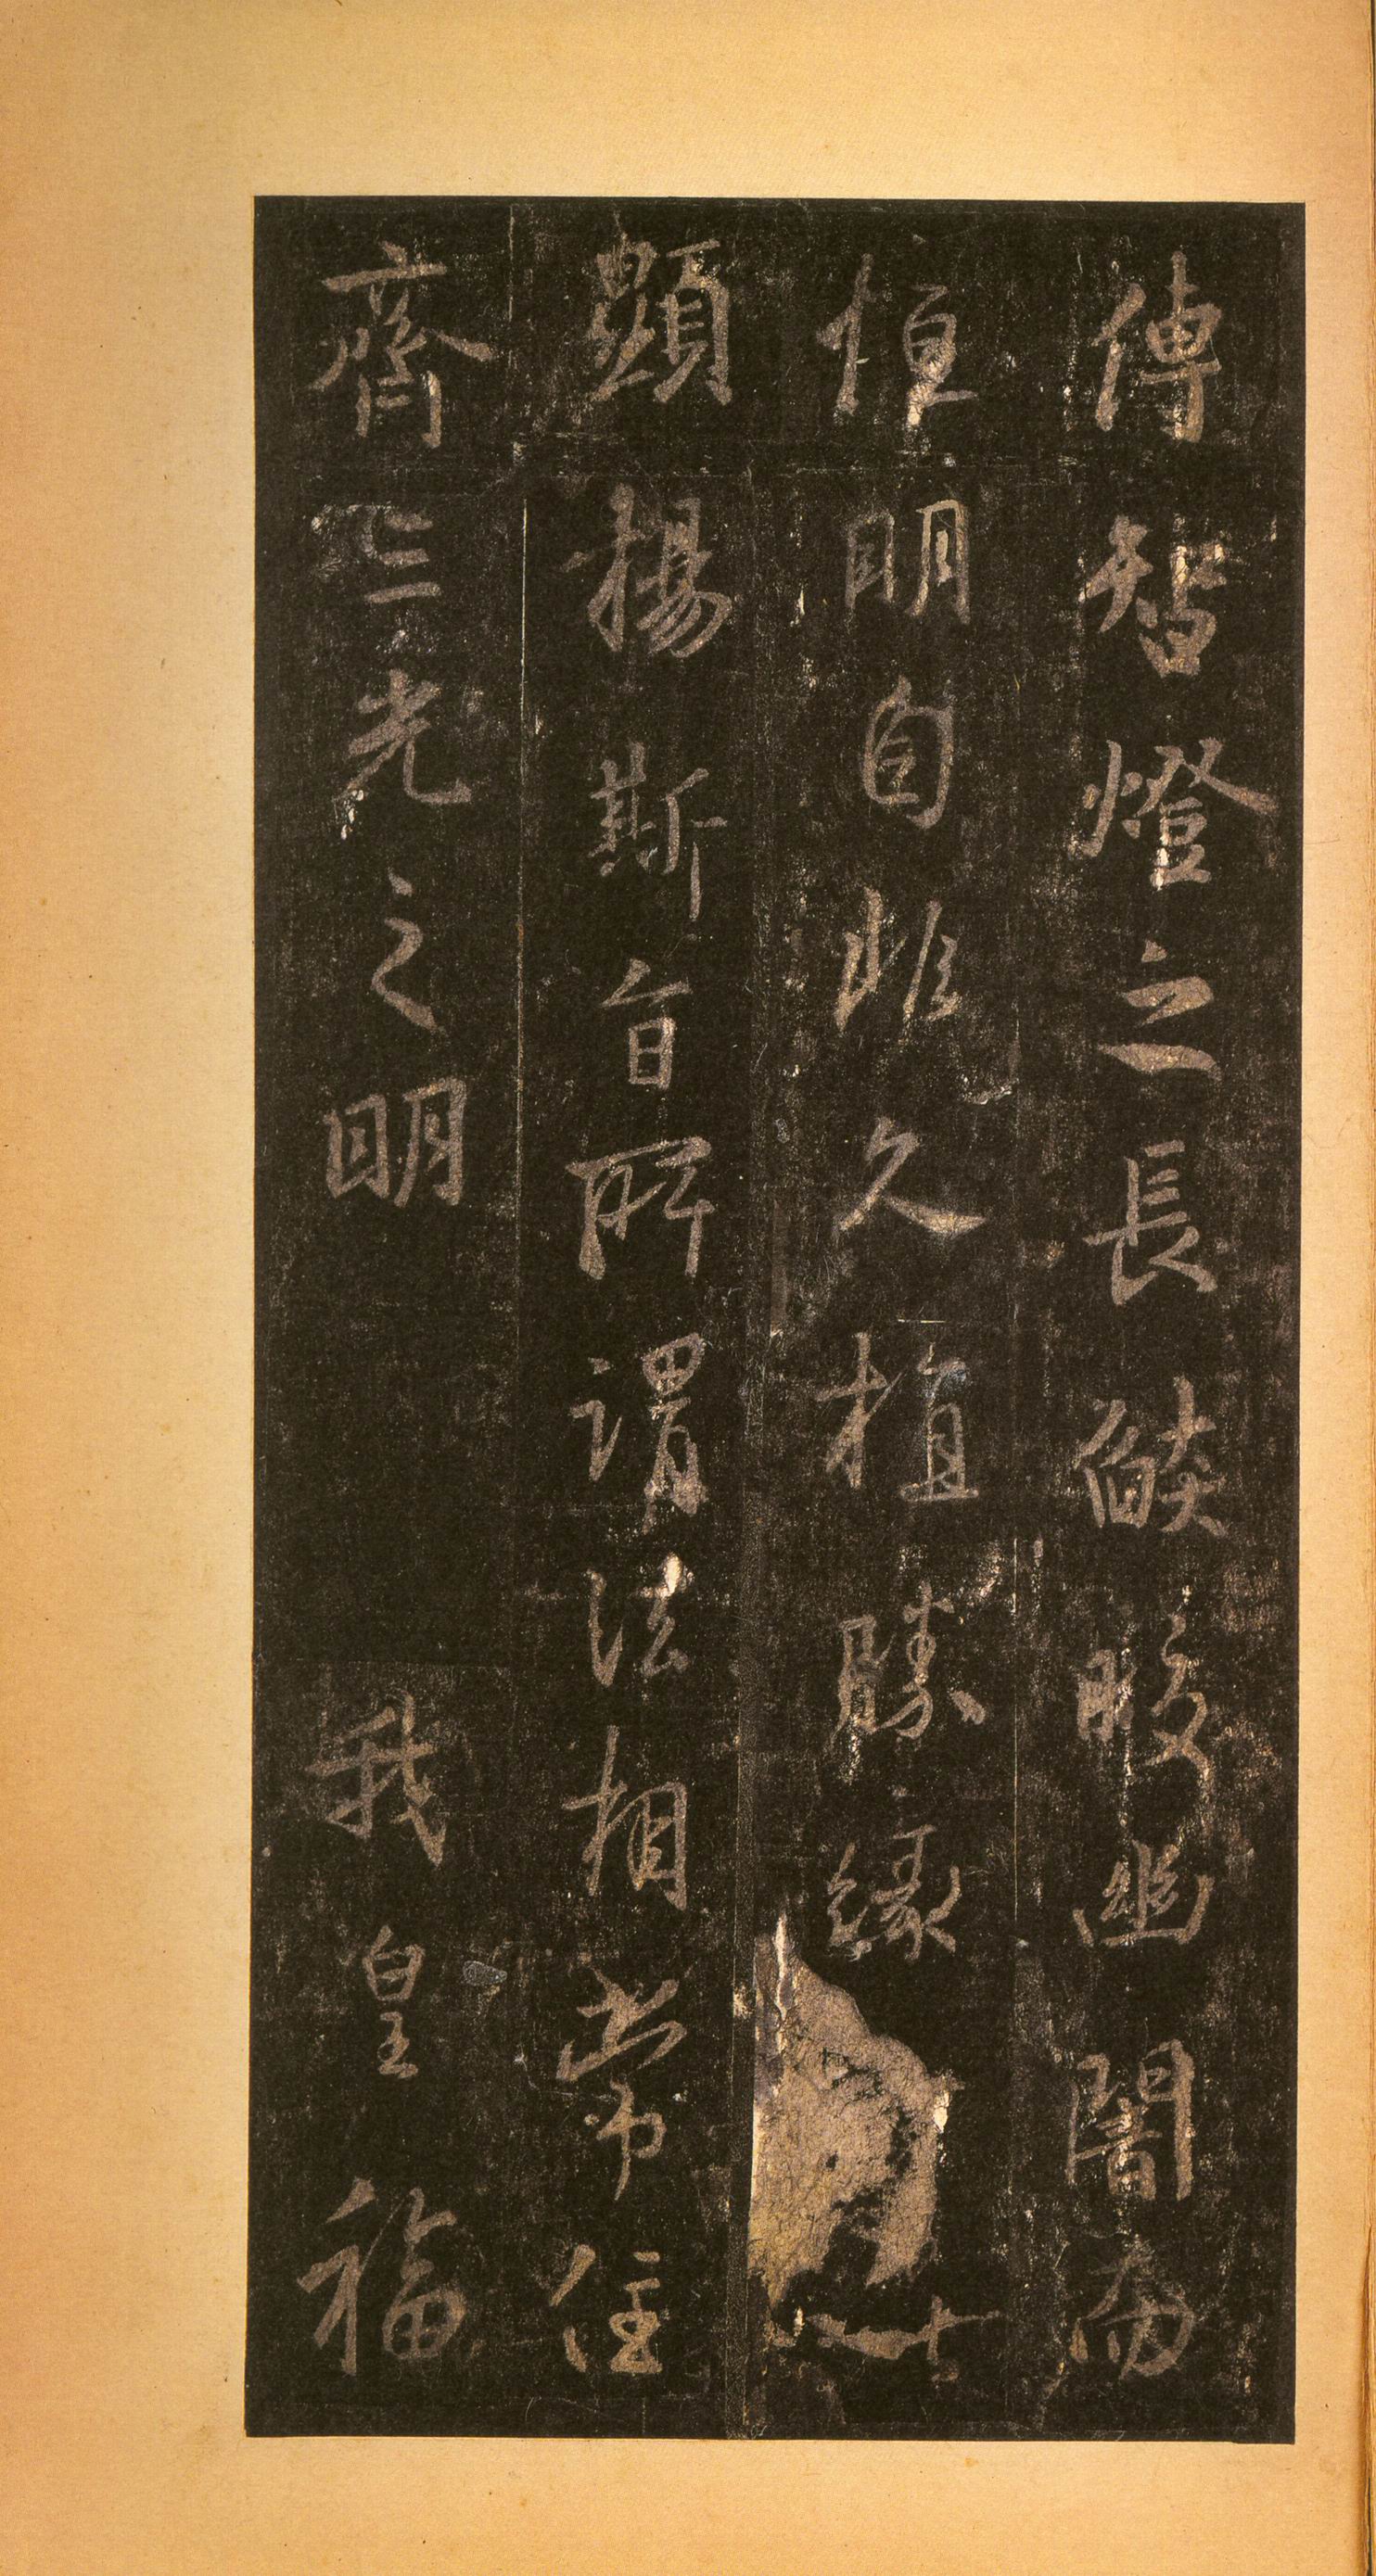 傳智燈之長燄皎幽闇而
恒明自非久植勝緣
顯揚斯旨所謂法相常住
齊三光之明我皇福